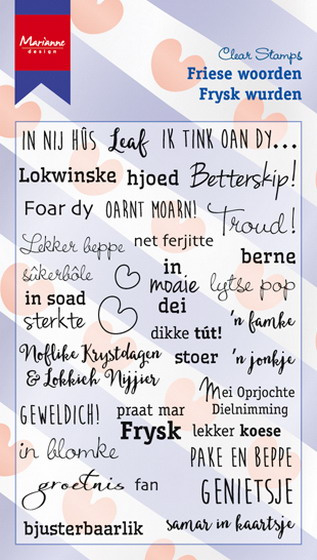 Marianne
design
Clear Stamps
Friese woorden
Frysk wurden
IN NIJ HÛS Leaf IK TINK OAN DY...
Lokwinske hjoed Betterskip!
Foar dy OARNT MOARN! Troud!
Lekker beppe net ferjitte
berne
sûkerbôle in moaie dei lytse pop
in soad sterkte
'n famke
dikke tút!
Noflike Krystdagen & Lokkich Nijjier
stoer 'n jonkje
Mei Oprjochte Dielnimming
GEWELDICH! praat mar Frysk lekker koese
in blomke PAKE EN BEPPE
groetnis fan GENIETSJE
bjusterbaarlik samar in kaartsje